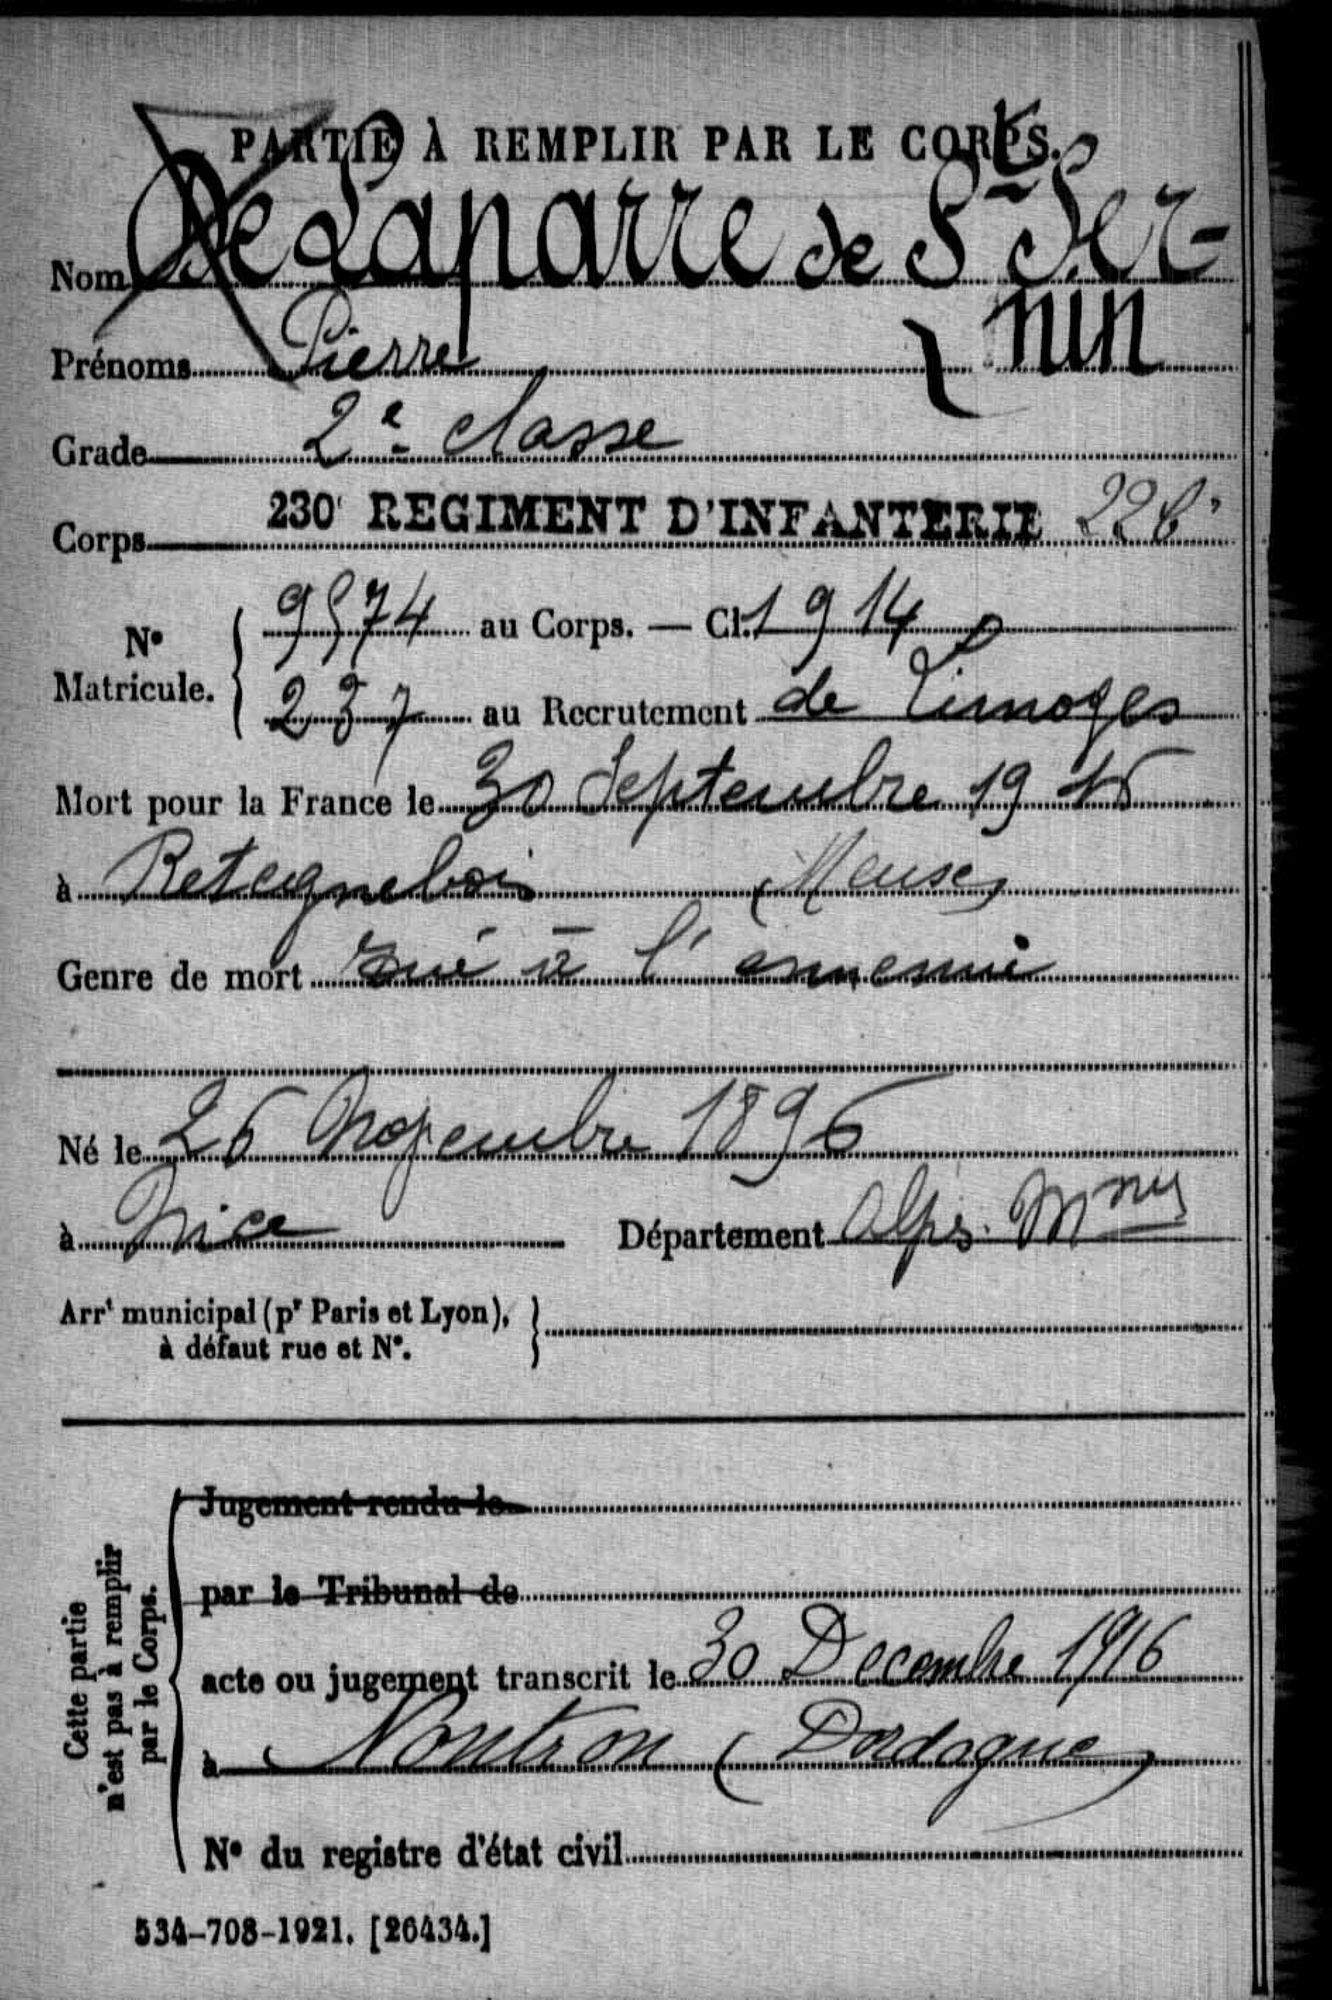 PARTIE À REMPLIR PAR LE CORPS.
Nom De Laparre de St Ser-
nin
Prénoms Pierre
Grade 2e classe
Corps 230e REGIMENT D'INFANTERIE
N° Matricule. 9574 au Corps. — Cl. 1914
237 au Recrutement de Limoges
Mort pour la France le 30 Septembre 19
à (Meuse)
Genre de mort Tué à l'ennemi
Né le 26 Novembre 1896
à Nice Département Alpes Mmes
Arrt municipal (pr Paris et Lyon),
à défaut rue et N°.
Cette partie
n'est pas à remplir
par le Corps.
Jugement rendu le
par le Tribunal de
acte ou jugement transcrit le 30 Decembre 1916
à Nontron (Dordogne)
N° du registre d'état civil
534-708-1921. [26434.]